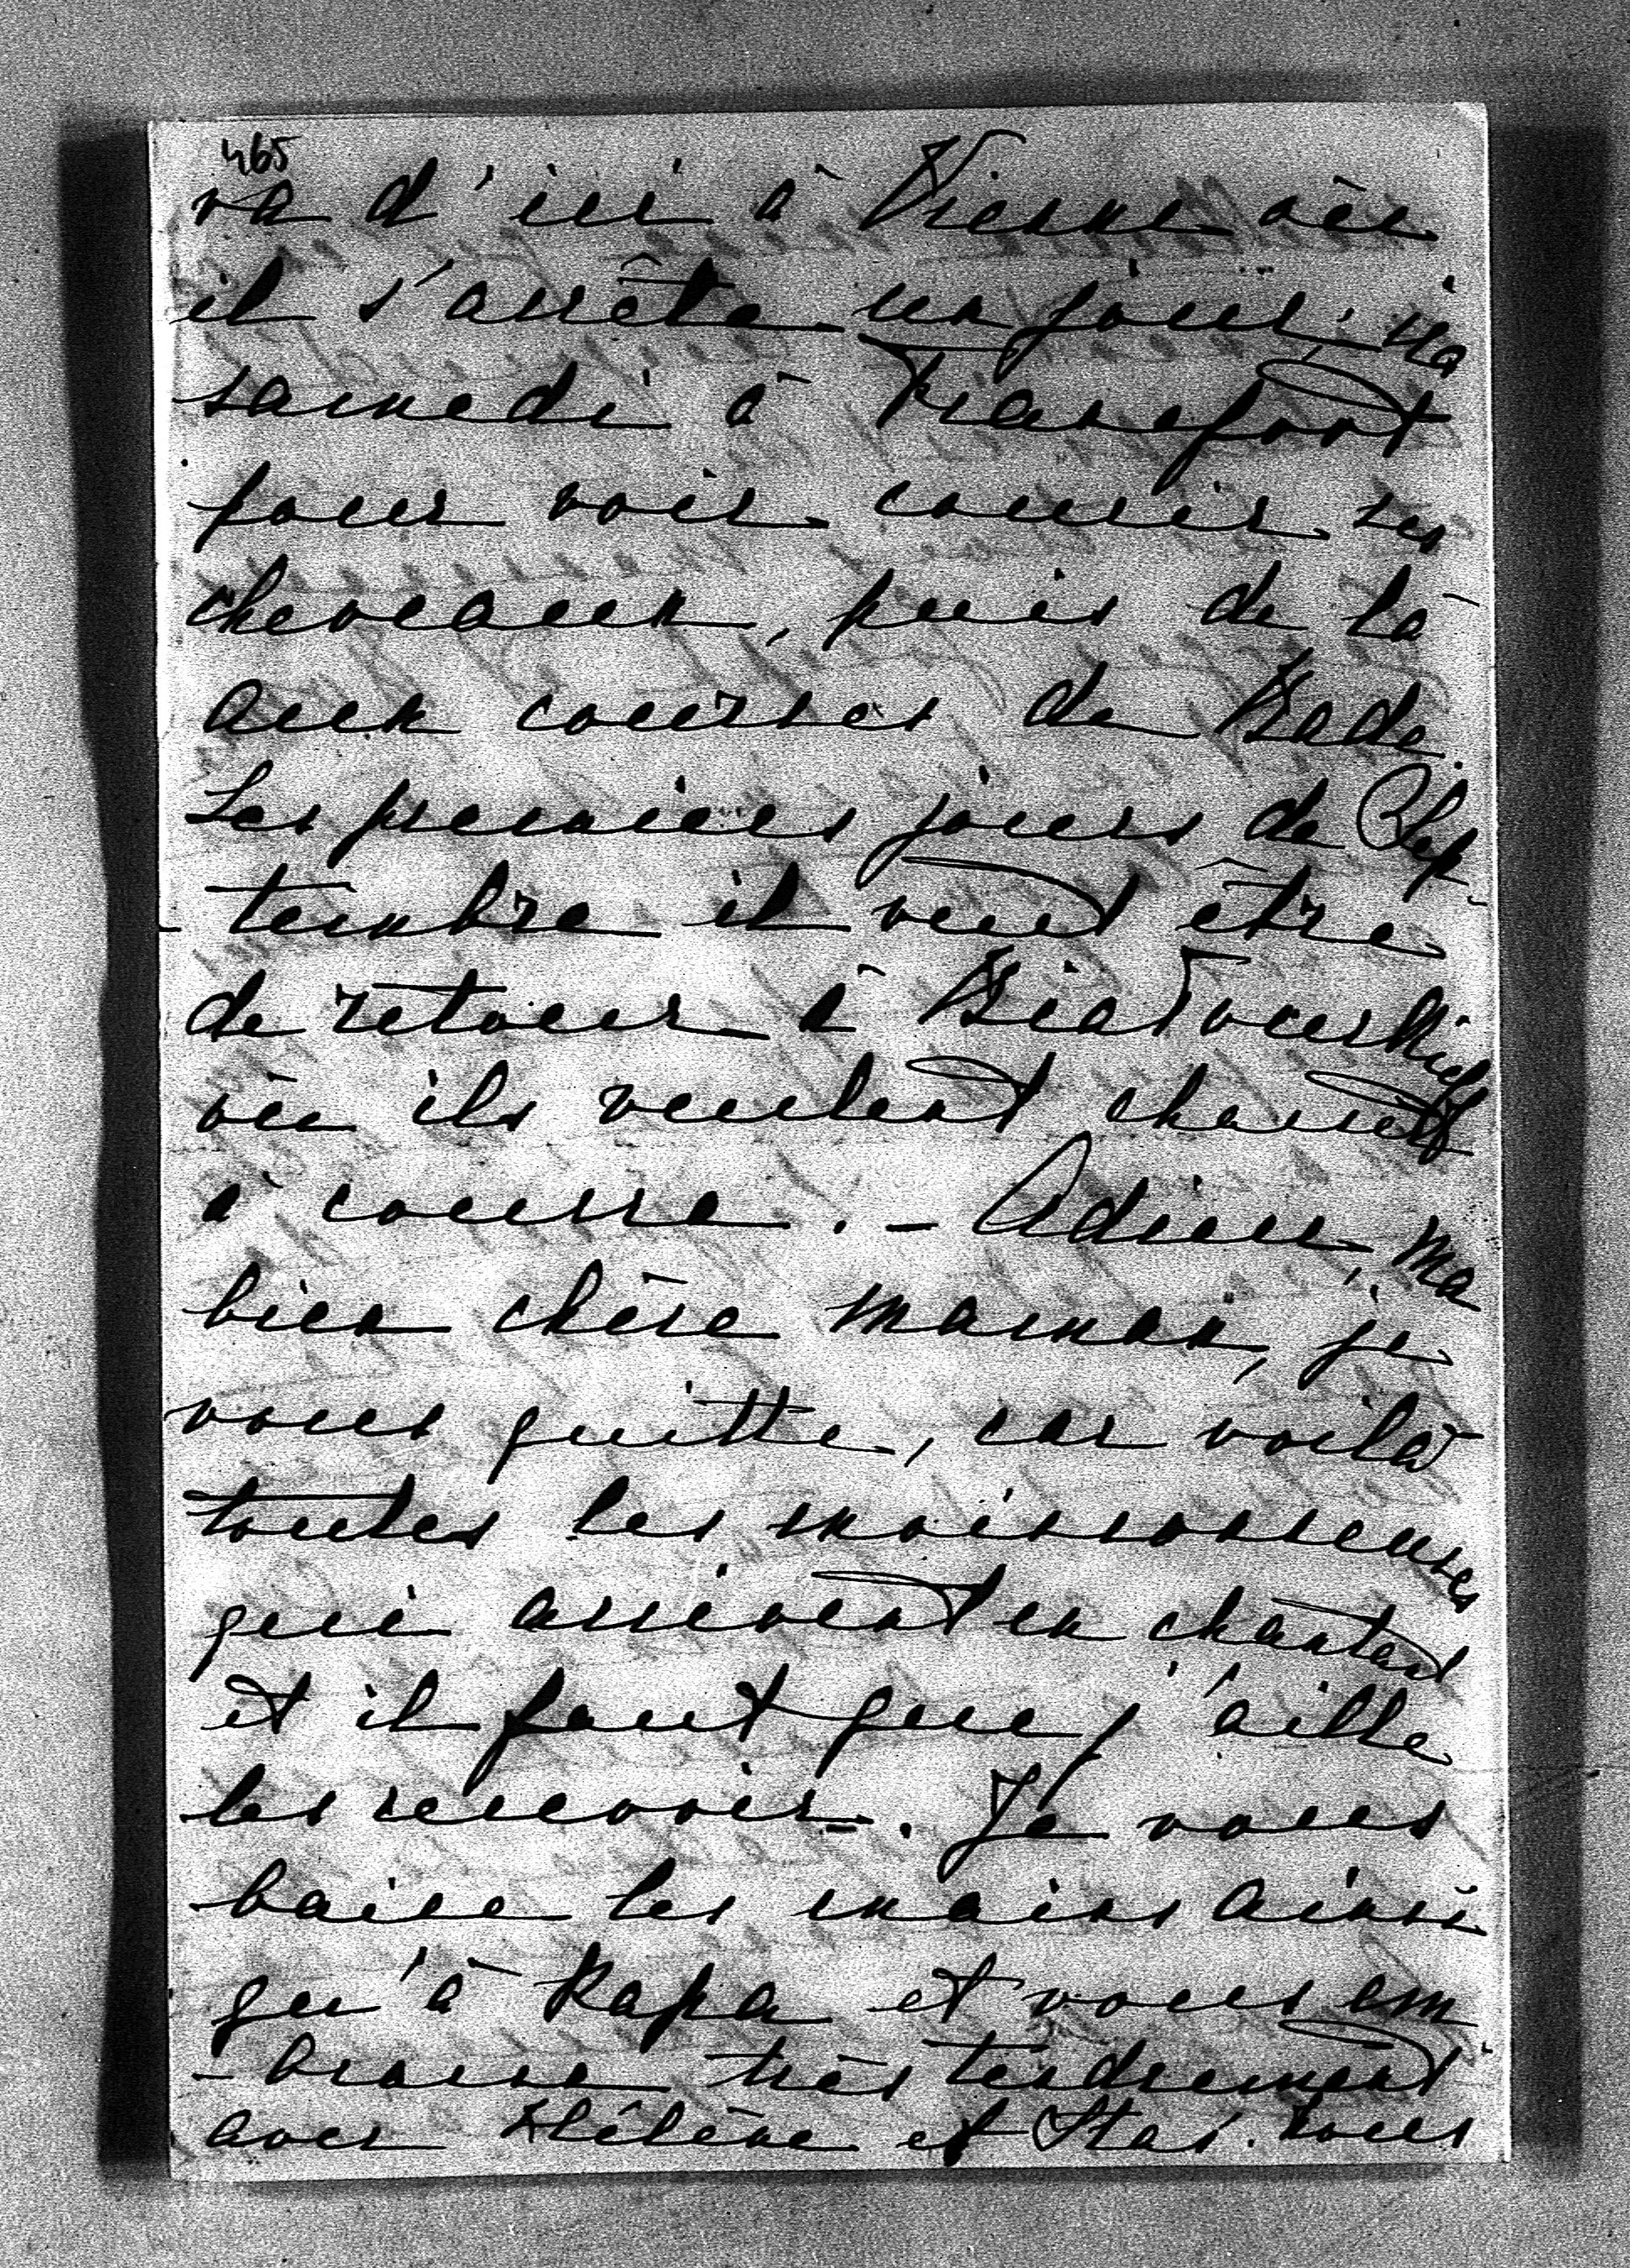 465
va d'ici à Vienne où
il s'arrête un jour, va
samedi à Francfort
pour voir courir ses
chevaux, puis de là
aux courses de Bade.
Les premiers jours de Sep
-tembre il veut être
de retour à
où ils veulent chasser
à courre. - Adieu, ma
bien chère Maman, je
vous quitte, car voilà
toutes les moissonneuses
qui arrivent en chantant
et il faut que j'aille
les recevoir. Je vous
baise les mains ainsi
qu'à Papa et vous em
-brasse très tendrement
avec Hélène et Stas. Vous